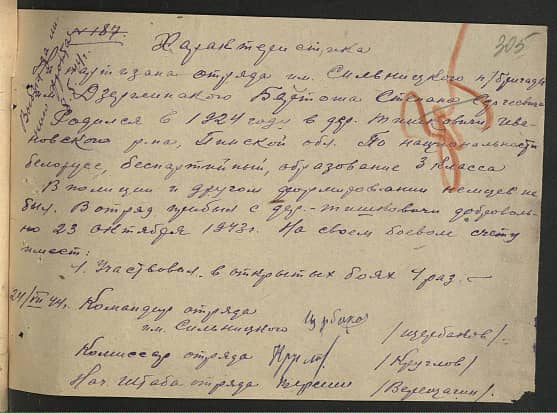 № 187
305
Характеристика
партизана отряда им. Сильницкого п/бригады
Дзержинского Бавтоша Степана Сергеевича
Родился в 1924 году в дер. Тышковичи Ива-
новского р-на, Пинской обл. По национальности
белорус, беспартийный, образование 3 класса
В полиции и другом формировании немцев не
был. В отряд прибыл с дер. Тышковичи доброволь-
но 23 октября 1943 г. На своем боевом счету
имеет:
1. Участвовал в открытых боях 4 раз. —
24/VII 44. Командир отряда
им. Сильницкого /Щербаков/.
Комиссар отряда /Круглов/
Нач. Штаба отряда /Верещагин/.